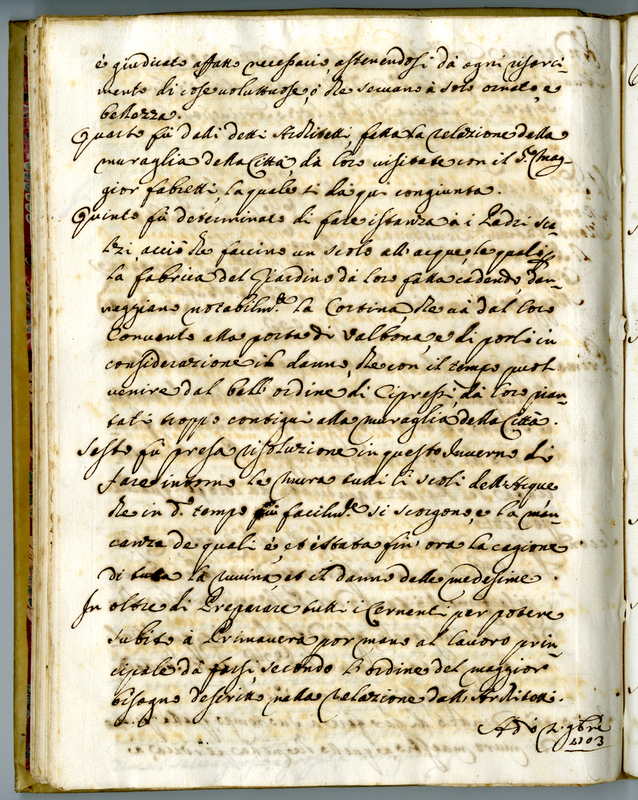 è giudicato affatto necessario, astenendosi da ogni risarci-
mento di cose voluttuose, ò che servano à solo ornato, e
bellezza.
Quarto fù dalli detti Architetti fatta la relazione della
muraglia della Città, dà loro visitate con il Sr. Mag-
gior Fabietti, la quale si dà quì congiunta.
Quinto fù determinato di fare istanza à i Padri Sca-
lzi, acciò che faccino un scolo all'acque, le quali
la fabrica del Giardino dà loro fatta cadendo, dan-
naggiano notabilmte. la Cortina, che và dal loro
Convento alla porta di Valbona, e di porli in
considerazione il danno, che con il tempo puol
venire dal bell'ordine di Cipressi dà loro pian-
tati troppo contigui alla muraglia della Città.
Sesto fù presa risoluzione in questo Inverno di
fare intorno le Mura tutti li scoli dell'Acque
che in do. tempo più facilmte. si scorgono, e la man-
canza de quali è, et è stata fin'ora la cagione
di tutta la ruvina, et il danno delle medesime.
In oltre di Preparare tutti i Cementi per potere
subito à Primavera por mano al lavoro prin-
cipale dà farsi, secondo l'ordine del maggior
bisogno descritto nella relazione dalli Architetti.
Adì gbre
1703